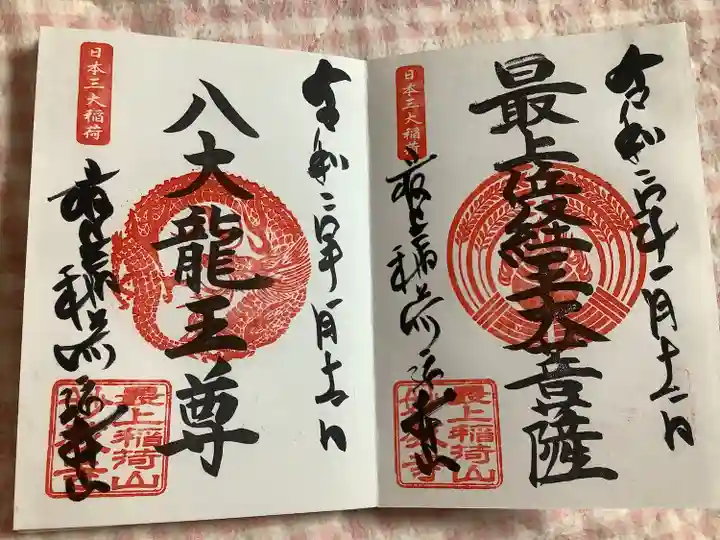 令和二年一月十二日
最上位経王大菩薩
日本三大稲荷
最上稲荷山
最上稲荷山
妙教寺
令和二年一月十二日
八大龍王尊
日本三大稲荷
最上稲荷山
最上稲荷山
妙教寺